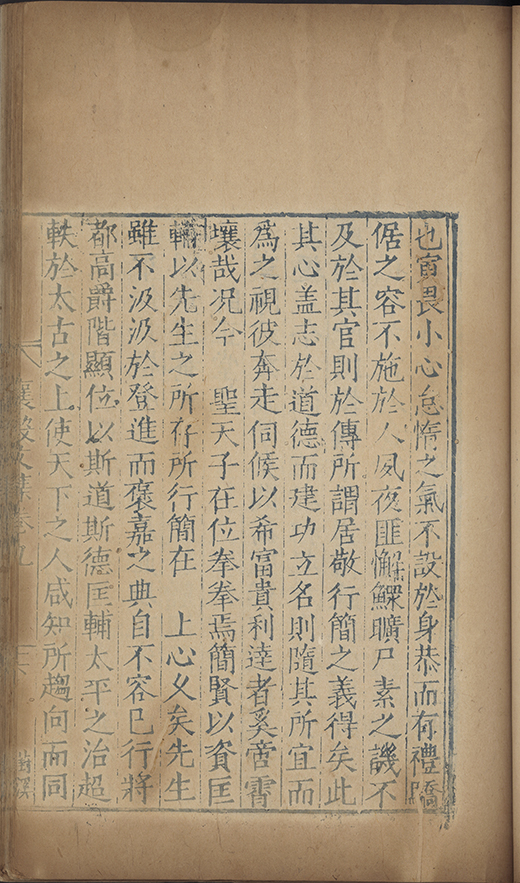 也寅畏小心怠惰之氣不設於身恭而有禮驕
倨之容不施於人夙夜匪懈鰥曠尸素之譏不
及於其官則於傳所謂居敬行簡之義得矣此
其心盖志於道德而建功立名則隨其所宜而
為之視彼奔走伺候以希富貴利達者奚啻霄
壤哉况今 聖天子在位拳拳焉簡賢以資匡
輔以先生之所存所行簡在 上心乆矣先生
雖不汲汲於登進而褒嘉之典自不容已行將
都高爵階顯位以斯道斯德匡輔太平之治超
軼於太古之上使天下之人咸知所趨向而同
襄毅文集卷九